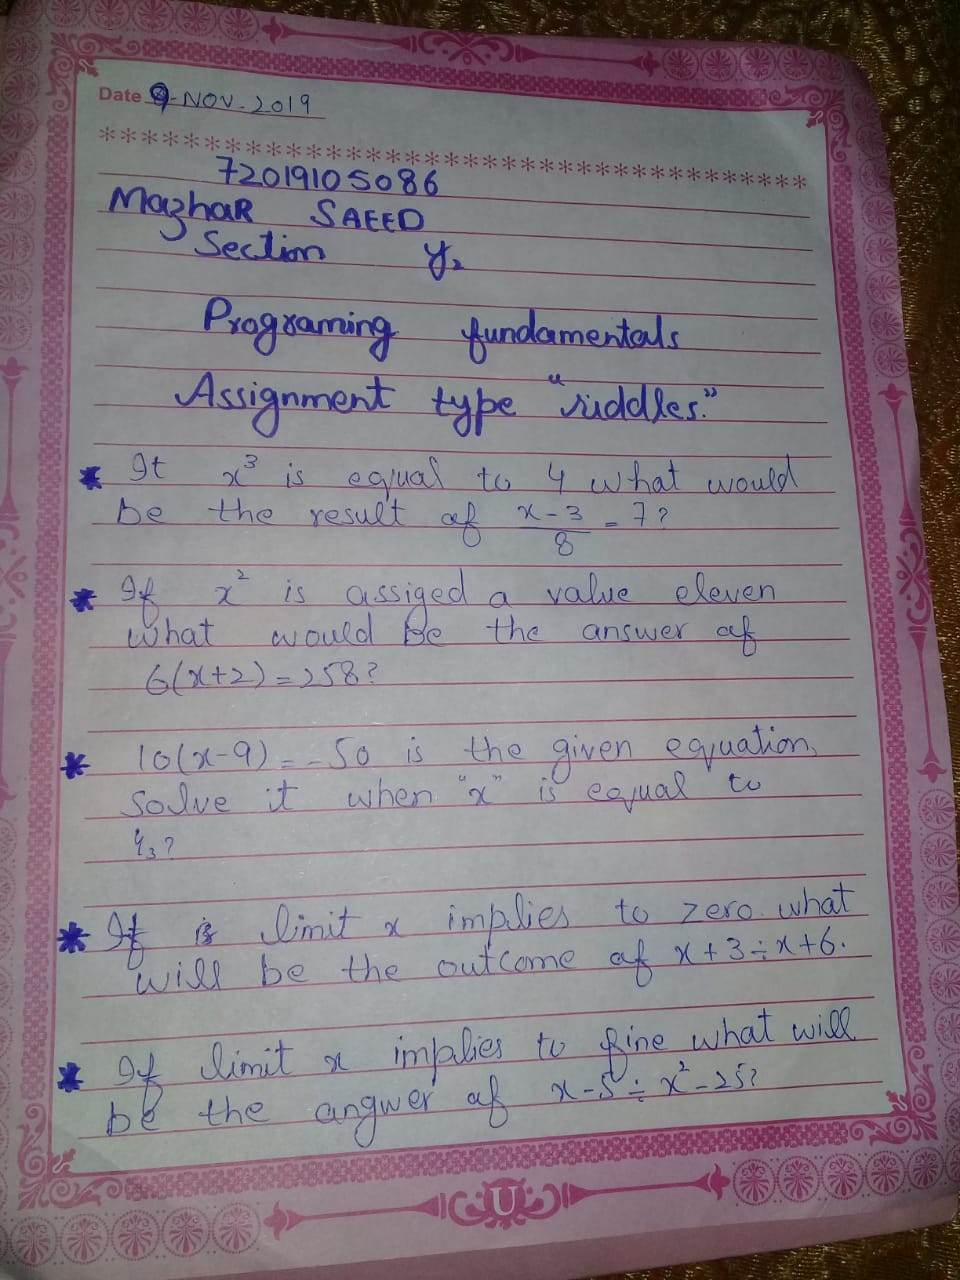 Date 9-NOV-2019
************************************
72019105086
Mazhar SAEED
Section Y2
Programing fundamentals
Assignment type "riddles."
* It x³ is equal to 4 what would
be the result of x-3/8 = 7?
* If x² is assiged a value eleven
what would be the answer of
6(x+2)=258?
* 10(x-9)=-50 is the given equation,
solve it when "x" is equal to
4/3?
* If limit x implies to zero. what
will be the outcome of x+3÷x+6.
* If limit x implies to fine what will
be the angwer of x-5÷x²-25?
U